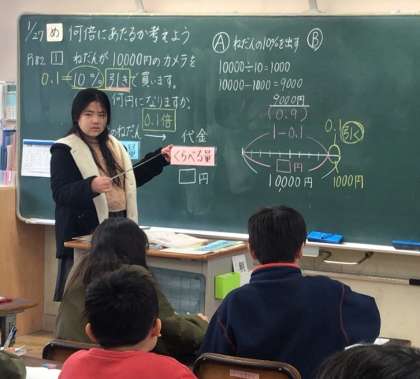 1/27 め 何倍にあたるか考えよう
P82 1 ねだんが10000円のカメラを
0.1= 10% 引きで買います。
何円になりますか。
0.1倍
のねだん → 代金
くらべる量
□円
A ねだんの10%を出す
10000÷10=1000
10000-1000=9000
9000円
B
(0.9)
1-0.1
0.1 引く
□円
10000円
1000円